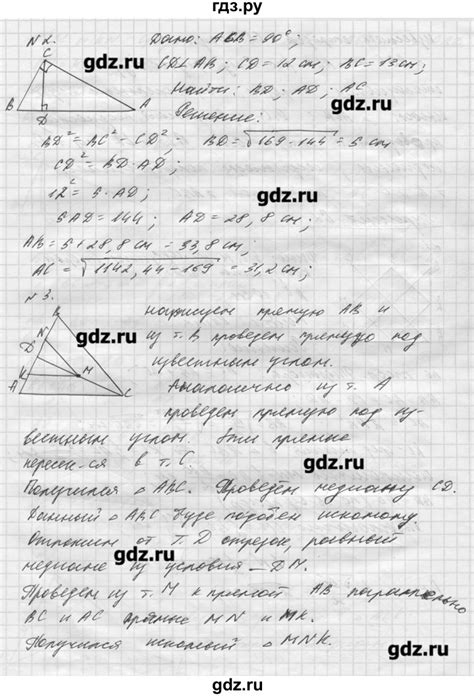 гдз.ру
N 2.
Дано: АСВ = 90°;
CD ⊥ AB; CD = 12 см; BC = 13 см;
Найти: BD; AD; AC
Решение:
C
B
D
A
BD² = BC² - CD²; BD = √169 - 144 = 5 см
CD² = BD · AD;
12² = 5 · AD;
5AD = 144; AD = 28,8 см;
AB = 5 + 28,8 см = 33,8 см;
AC = √1142,44 - 169 = 31,2 см;
N 3.
B
N
D
K
A
M
C
нарисуем прямую AB и
из т. B проведем прямую под
известным углом.
Аналогично из т. A
проведем прямую под из-
вестным углом. Эти прямые
пересек-ся в т. C.
Получился △ ABC. Проведем медиану CD.
Данный △ ABC будет подобен искомому.
Отложим от т. D отрезок, равный
медиане из условия - DM.
Проведем из т. M к прямой AB параллельно
BC и AC прямые MN и MK.
Получился искомый △ MNK.
gdz.ru
gdz.ru
gdz.ru
gdz.ru
gdz.ru
gdz.ru
gdz.ru
gdz.ru
gdz.ru